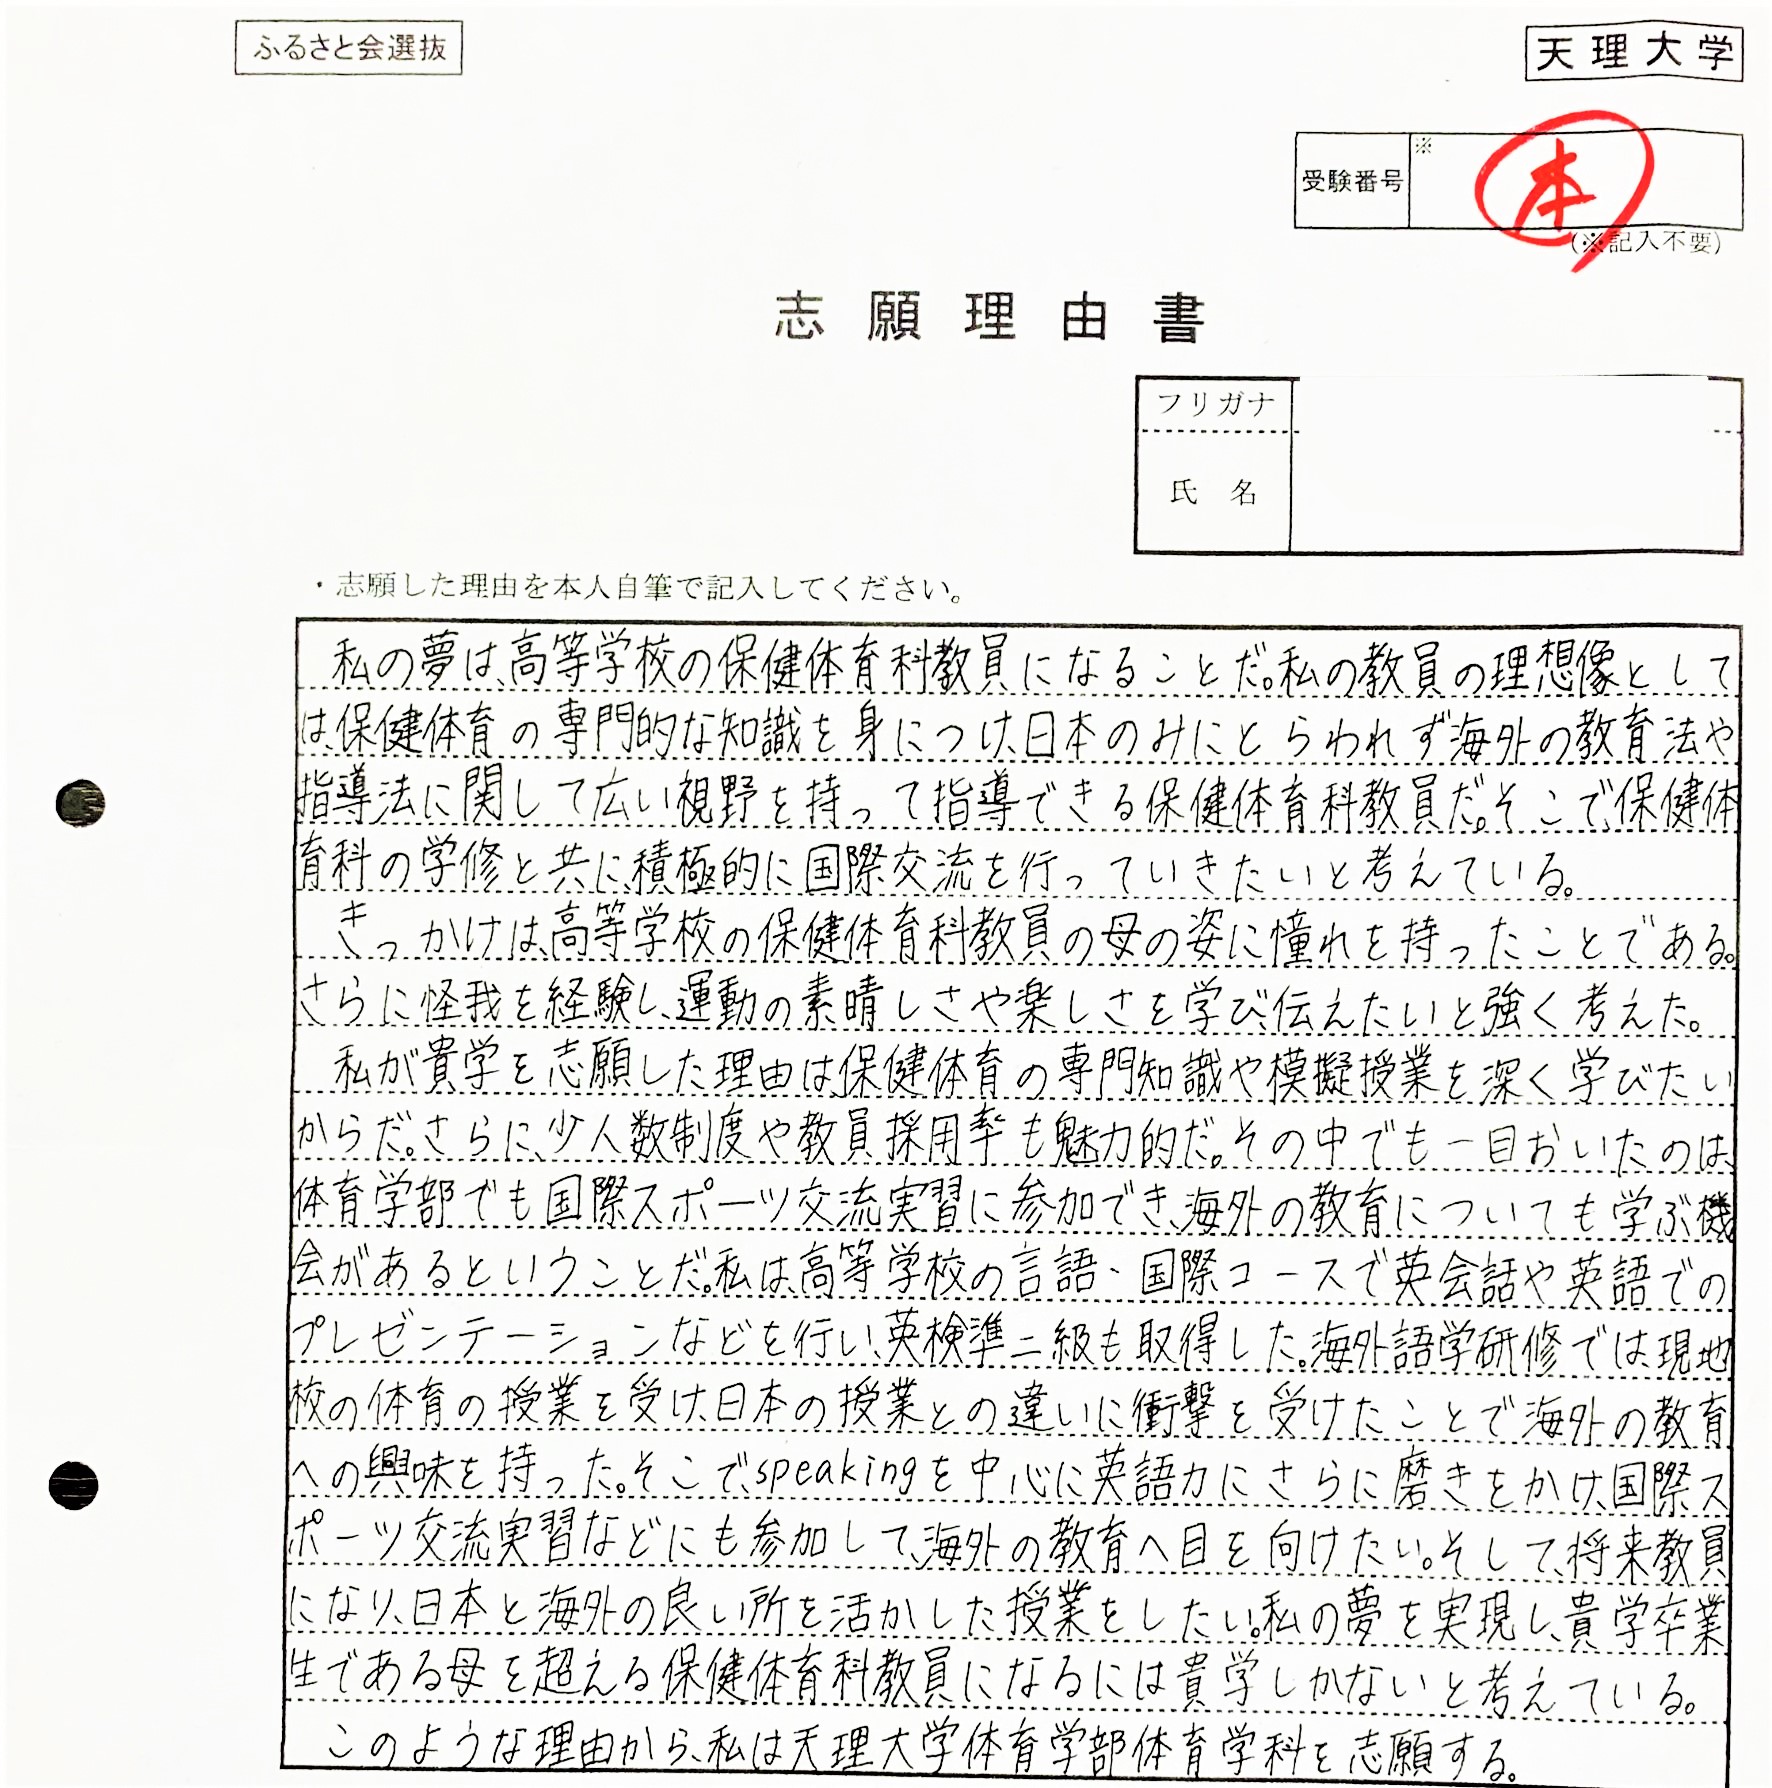 ふるさと会選抜
天理大学
受験番号
※
本
(※記入不要)
志願理由書
フリガナ
氏名
・志願した理由を本人自筆で記入してください。
私の夢は、高等学校の保健体育科教員になることだ。私の教員の理想像として
は、保健体育の専門的な知識を身につけ、日本のみにとらわれず海外の教育法や
指導法に関して広い視野を持って指導できる保健体育科教員だ。そこで、保健体
育科の学修と共に、積極的に国際交流を行っていきたいと考えている。
きっかけは、高等学校の保健体育科教員の母の姿に憧れを持ったことである。
さらに怪我を経験し、運動の素晴しさや楽しさを学び、伝えたいと強く考えた。
私が貴学を志願した理由は、保健体育の専門知識や模擬授業を深く学びたい
からだ。さらに、少人数制度や教員採用率も魅力的だ。その中でも一目おいたのは、
体育学部でも国際スポーツ交流実習に参加でき、海外の教育についても学ぶ機
会があるということだ。私は、高等学校の言語・国際コースで英会話や英語での
プレゼンテーションなどを行い、英検準二級も取得した。海外語学研修では、現地
校の体育の授業を受け、日本の授業との違いに衝撃を受けたことで海外の教育
への興味を持った。そこで、speakingを中心に英語力にさらに磨きをかけ、国際ス
ポーツ交流実習などにも参加して、海外の教育へ目を向けたい。そして、将来教員
になり、日本と海外の良い所を活かした授業をしたい。私の夢を実現し、貴学卒業
生である母を超える保健体育科教員になるには貴学しかないと考えている。
このような理由から、私は天理大学体育学部体育学科を志願する。